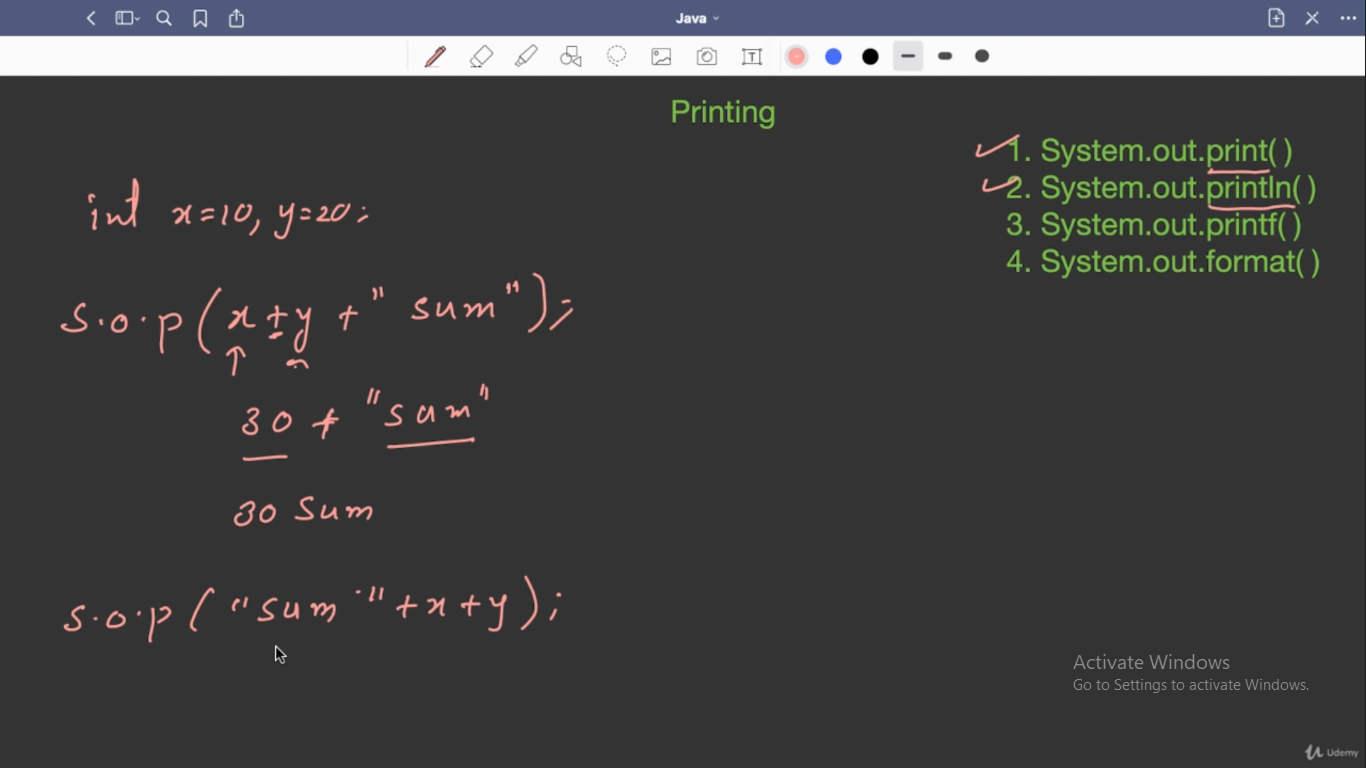 Java
Printing
1. System.out.print( )
2. System.out.println( )
3. System.out.printf( )
4. System.out.format( )
int x=10, y=20;
S.o.p(x+y +" sum");
30 + "sum"
30 Sum
S.o.p("sum "+x+y);
Activate Windows
Go to Settings to activate Windows.
Udemy